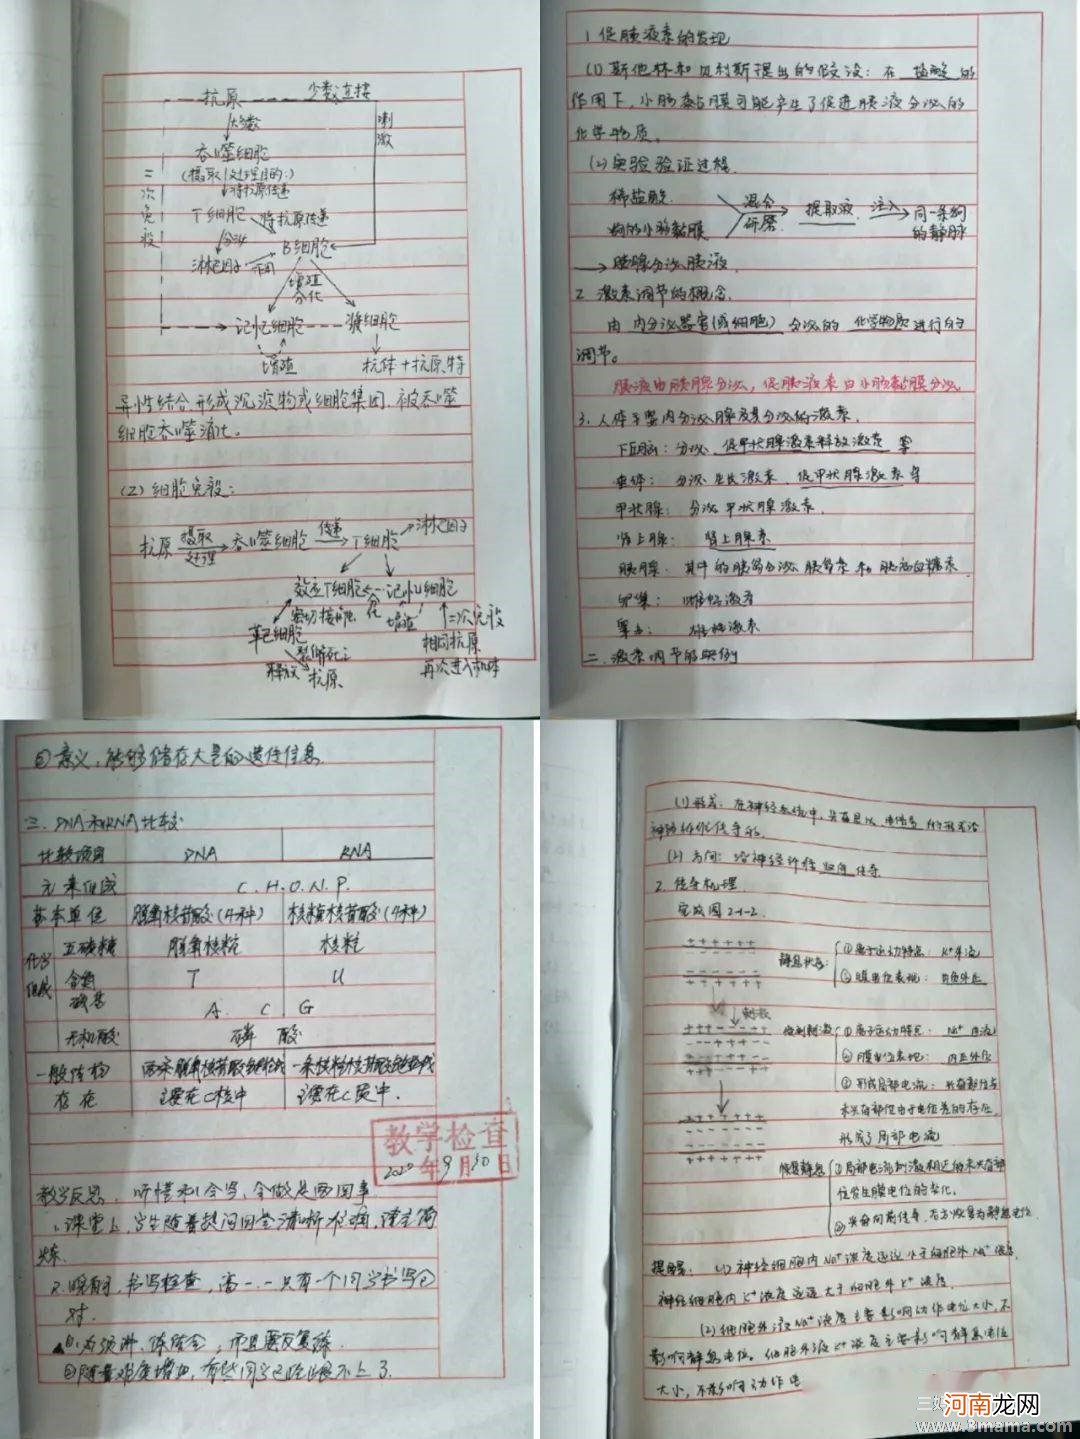 抗原 少数直接
大多数 刺激
吞噬细胞
(摄取 处理
二次免疫
将抗原传递
T细胞 将抗原传递
分泌 B细胞
淋巴因子 作用
增殖
分化
记忆细胞 浆细胞
增殖 抗体+抗原特
异性结合,形成沉淀物或细胞集团,被吞噬
细胞吞噬消化。
(2)细胞免疫:
抗原 摄取 处理 吞噬细胞 传递 T细胞 淋巴因子
效应T细胞 分化 记忆细胞
密切接触 增殖 二次免疫
靶细胞 相同抗原
裂解死亡 再次进入机体
释放 抗原
1.促胰液素的发现
(1)斯他林和贝利斯提出的假设:在 盐酸 的
作用下,小肠黏膜可能产生了促进胰液分泌的
化学物质。
(2)实验验证过程
稀盐酸 混合 提取液 注入 同一条狗
狗的小肠黏膜 研磨 的静脉
→胰腺分泌胰液.
2.激素调节的概念.
由 内分泌器官(或细胞) 分泌的 化学物质 进行的
调节。
胰液由胰腺分泌,促胰液素由小肠黏膜分泌
3.人体主要内分泌腺及其分泌的激素.
下丘脑:分泌 促甲状腺激素释放激素 等
垂体:分泌生长激素、促甲状腺激素等
甲状腺:分泌甲状腺激素.
肾上腺:肾上腺素
胰腺:其中的胰岛分泌胰岛素和胰高血糖素.
卵巢:雌性激素
睾丸:雄性激素
二.激素调节的实例
意义:能够储存大量的遗传信息.
三.DNA和RNA比较
比较项目 DNA RNA
元素组成 C.H.O.N.P.
基本单位 脱氧核苷酸(4种) 核糖核苷酸(4种)
化学组成 五碳糖 脱氧核糖 核糖
含氮碱基 T U
A. C G
无机酸 磷酸
一般结构 两条脱氧核苷酸链 一条核糖核苷酸链
存在 主要在C核中 主要在C质中.
教学检查
2020年9月30日
教学反思.听懂和会写、会做是两回事.
1.课堂上,学生随着提问回答清晰准确,
炼.
书写检查,高一.一只有一个同学书写全
对.
①.为
②随着难度增加,有些同学已经跟不上了.
(1)形式:在神经系统中,兴奋是以 电信号 的形式沿
神经纤维传导的.
(2)方向:沿神经纤维 双向 传导.
2.传导机理.
完成图2-1-2.
静息状态: ①离子运动特点:K⁺外流
②膜电位表现:内负外正
刺激
受到刺激 ①离子运动特点:Na⁺内流
②膜电位表现:内正外负
③形成局部电流:兴奋部位与
未兴奋部位由于电位差的存在,
形成了局部电流
恢复静息 ①局部电流刺激相近的未兴奋部
位发生膜电位的变化.
②兴奋向前传导,后方恢复为静息电位.
提醒: (1)神经细胞内Na⁺浓度远远小于细胞外Na⁺浓度,
神经细胞内K⁺浓度远远大于细胞外K⁺浓度.
(2)细胞外液Na⁺浓度主要影响动作电位大小,不
影响静息电位.细胞外液K⁺浓度主要影响静息电位
大小,不影响动作电
河南龙网
www.3mama.com